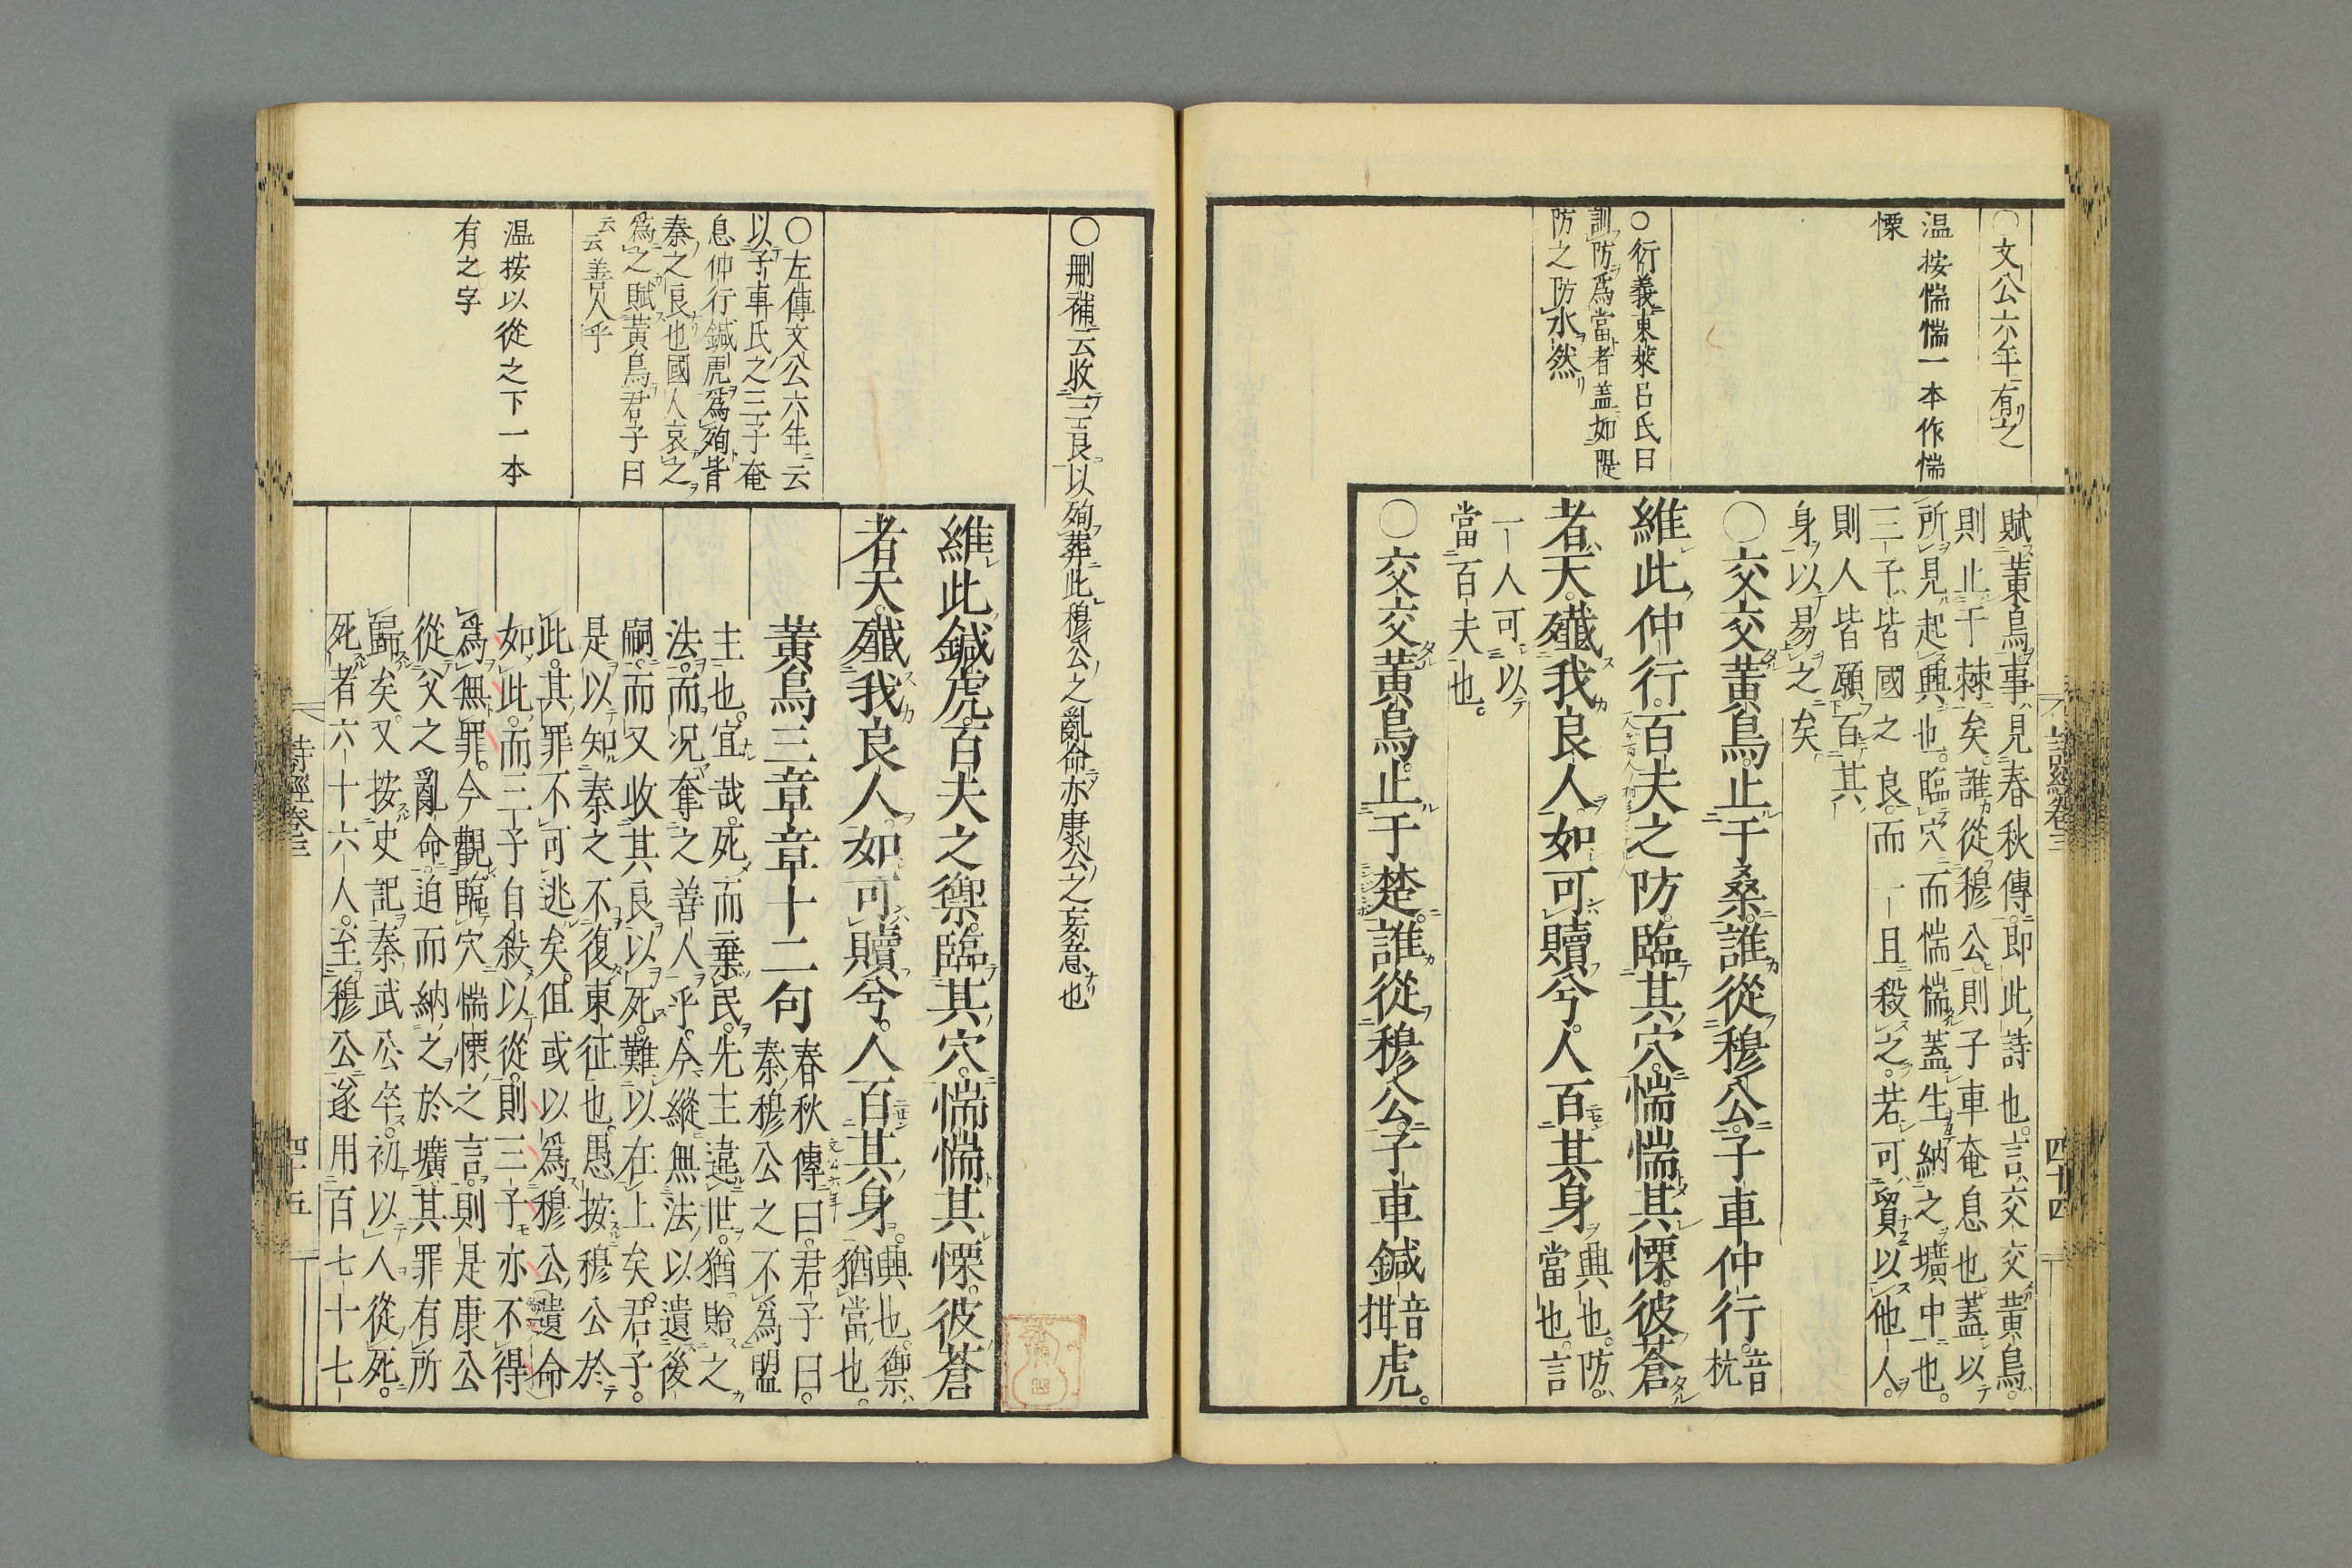 〇文公六年有之
温按惴惴一本作惴
慄
〇衍義東莱呂氏曰
訓防爲當者蓋如隄
防之防水然
賦黄鳥事見春秋傳即此詩也。言交交黄鳥。
則止于棘矣。誰從穆公。則子車奄息也。蓋以
所見起興也。臨穴而惴惴。蓋生納之壙中也。
三子皆國之良。而一旦殺之。若可貿以他人。
則人皆願百其
身以易之矣。
〇交交黄鳥。止于桑。誰從穆公。子車仲行。音杭
維此仲行。百夫之防。臨其穴。惴惴其慄。彼蒼
者天。殲我良人。如可贖兮。人百其身。興也。防。當也。言
一人可以
當百夫也。
〇交交黄鳥。止于楚。誰從穆公。子車鍼音拑虎。
詩經卷三
四十四
〇刪補云收三良以殉葬此穆公之亂命亦康公之妄意也
〇左傳文公六年云
以子車氏之三子奄
息仲行鍼虎爲殉皆
秦之良也國人哀之
爲之賦黄鳥君子曰
云云善人乎
温按以從之下一本
有之字
維此鍼虎。百夫之禦。臨其穴。惴惴其慄。彼蒼
者天。殲我良人。如可贖兮。人百其身。興也。禦。猶當也。
黄鳥三章章十二句 春秋傳曰。君子曰。秦穆公之不爲盟
主也。宜哉。死而棄民。先王違世。猶貽之
法。而况奪之善人乎。今縱無法以遺後
嗣。而又收其良以死。難以在上矣。君子。
是以知秦之不復東征也。愚按穆公於
此。其罪不可逃矣。但或以爲穆公遺命
如此。而三子自殺以從。則三子亦不得
爲無罪。今觀臨穴惴慄之言。則是康公
從父之亂命。迫而納之於壙。其罪有所
歸矣。又按史記秦武公卒。初以人從死。
死者六十六人。至穆公遂用百七十七
詩經卷三
四十五